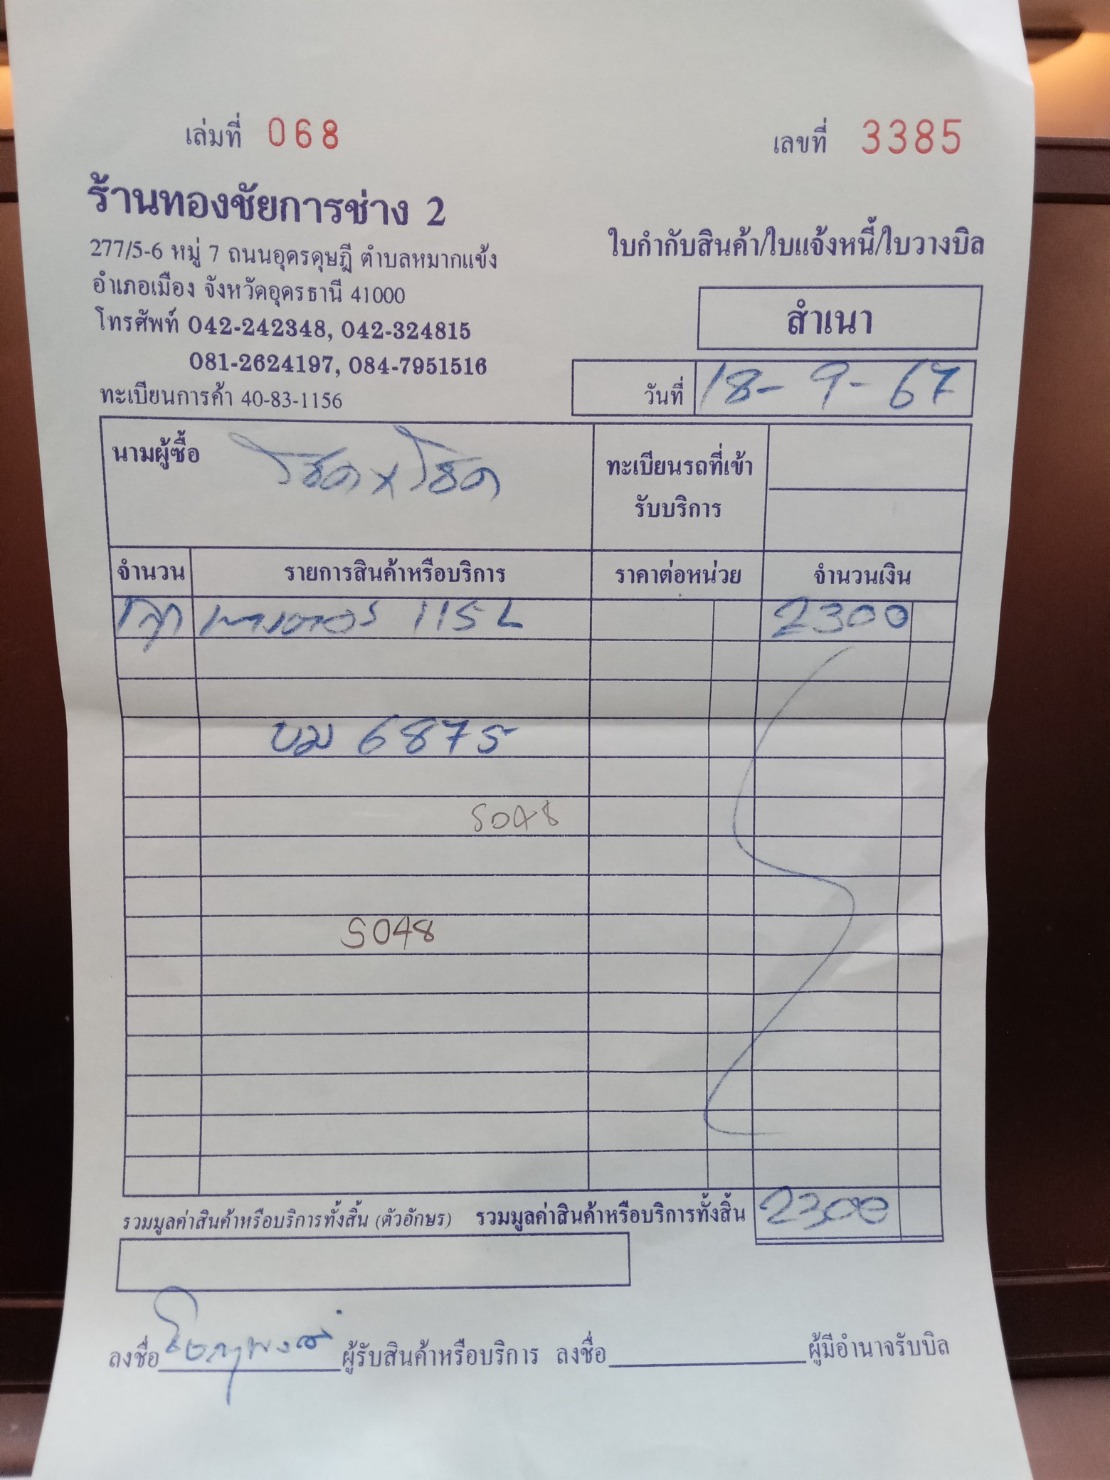 เล่มที่ 068
เลขที่ 3385
ร้านทองชัยการช่าง 2
277/5-6 หมู่ 7 ถนนอุดรดุษฎี ตำบลหมากแข้ง
อำเภอเมือง จังหวัดอุดรธานี 41000
โทรศัพท์ 042-242348, 042-324815
081-2624197, 084-7951516
ทะเบียนการค้า 40-83-1156
ใบกำกับสินค้า/ใบแจ้งหนี้/ใบวางบิล
สำเนา
วันที่ 18-9-67
นามผู้ซื้อ โชค x โชค
ทะเบียนรถที่เข้า
รับบริการ
จำนวน รายการสินค้าหรือบริการ ราคาต่อหน่วย จำนวนเงิน
115L 2300
บม 6875
5048
5048
รวมมูลค่าสินค้าหรือบริการทั้งสิ้น (ตัวอักษร) รวมมูลค่าสินค้าหรือบริการทั้งสิ้น 2300
ลงชื่อ ผู้รับสินค้าหรือบริการ ลงชื่อ ผู้มีอำนาจรับบิล